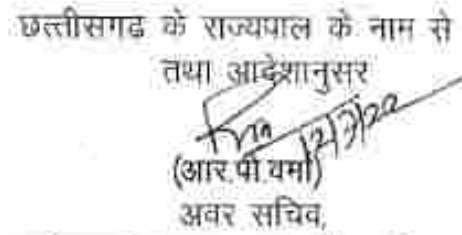 छत्तीसगढ के राज्यपाल के नाम से
तथा आदेशानुसर
(आर.पी.वर्मा)
अवर सचिव,